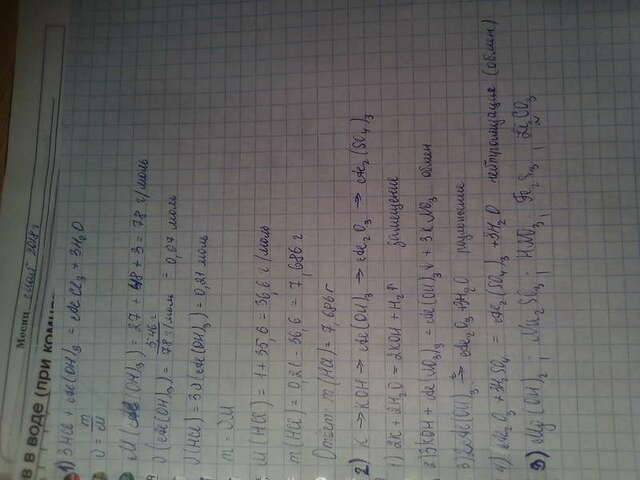 Месяц
в в воде (при комн
1) 3HCl + Al(OH)3 = AlCl3 + 3H2O
ν = m/M
M(Al(OH)3) = 27 + 48 + 3 = 78 г/моль
ν(Al(OH)3) = 5,46 г / 78 г/моль = 0,07 моль
ν(HCl) = 3ν(Al(OH)3) = 0,21 моль
m = νM
M(HCl) = 1 + 35,6 = 36,6 г/моль
m(HCl) = 0,21 · 36,6 = 7,686 г
Ответ: m(HCl) = 7,686 г
2) K → KOH → Al(OH)3 → Al2O3 → Al2(SO4)3
1) 2K + 2H2O = 2KOH + H2↑ замещение
2) 3KOH + Al(NO3)3 = Al(OH)3↓ + 3KNO3 обмен
3) 2Al(OH)3 = Al2O3 + 3H2O разложение
4) Al2O3 + 3H2SO4 = Al2(SO4)3 + 3H2O нейтрализация (обмен)
3) Mg(OH)2; Na2SO3; HNO3; Fe2S3; Li2CO3